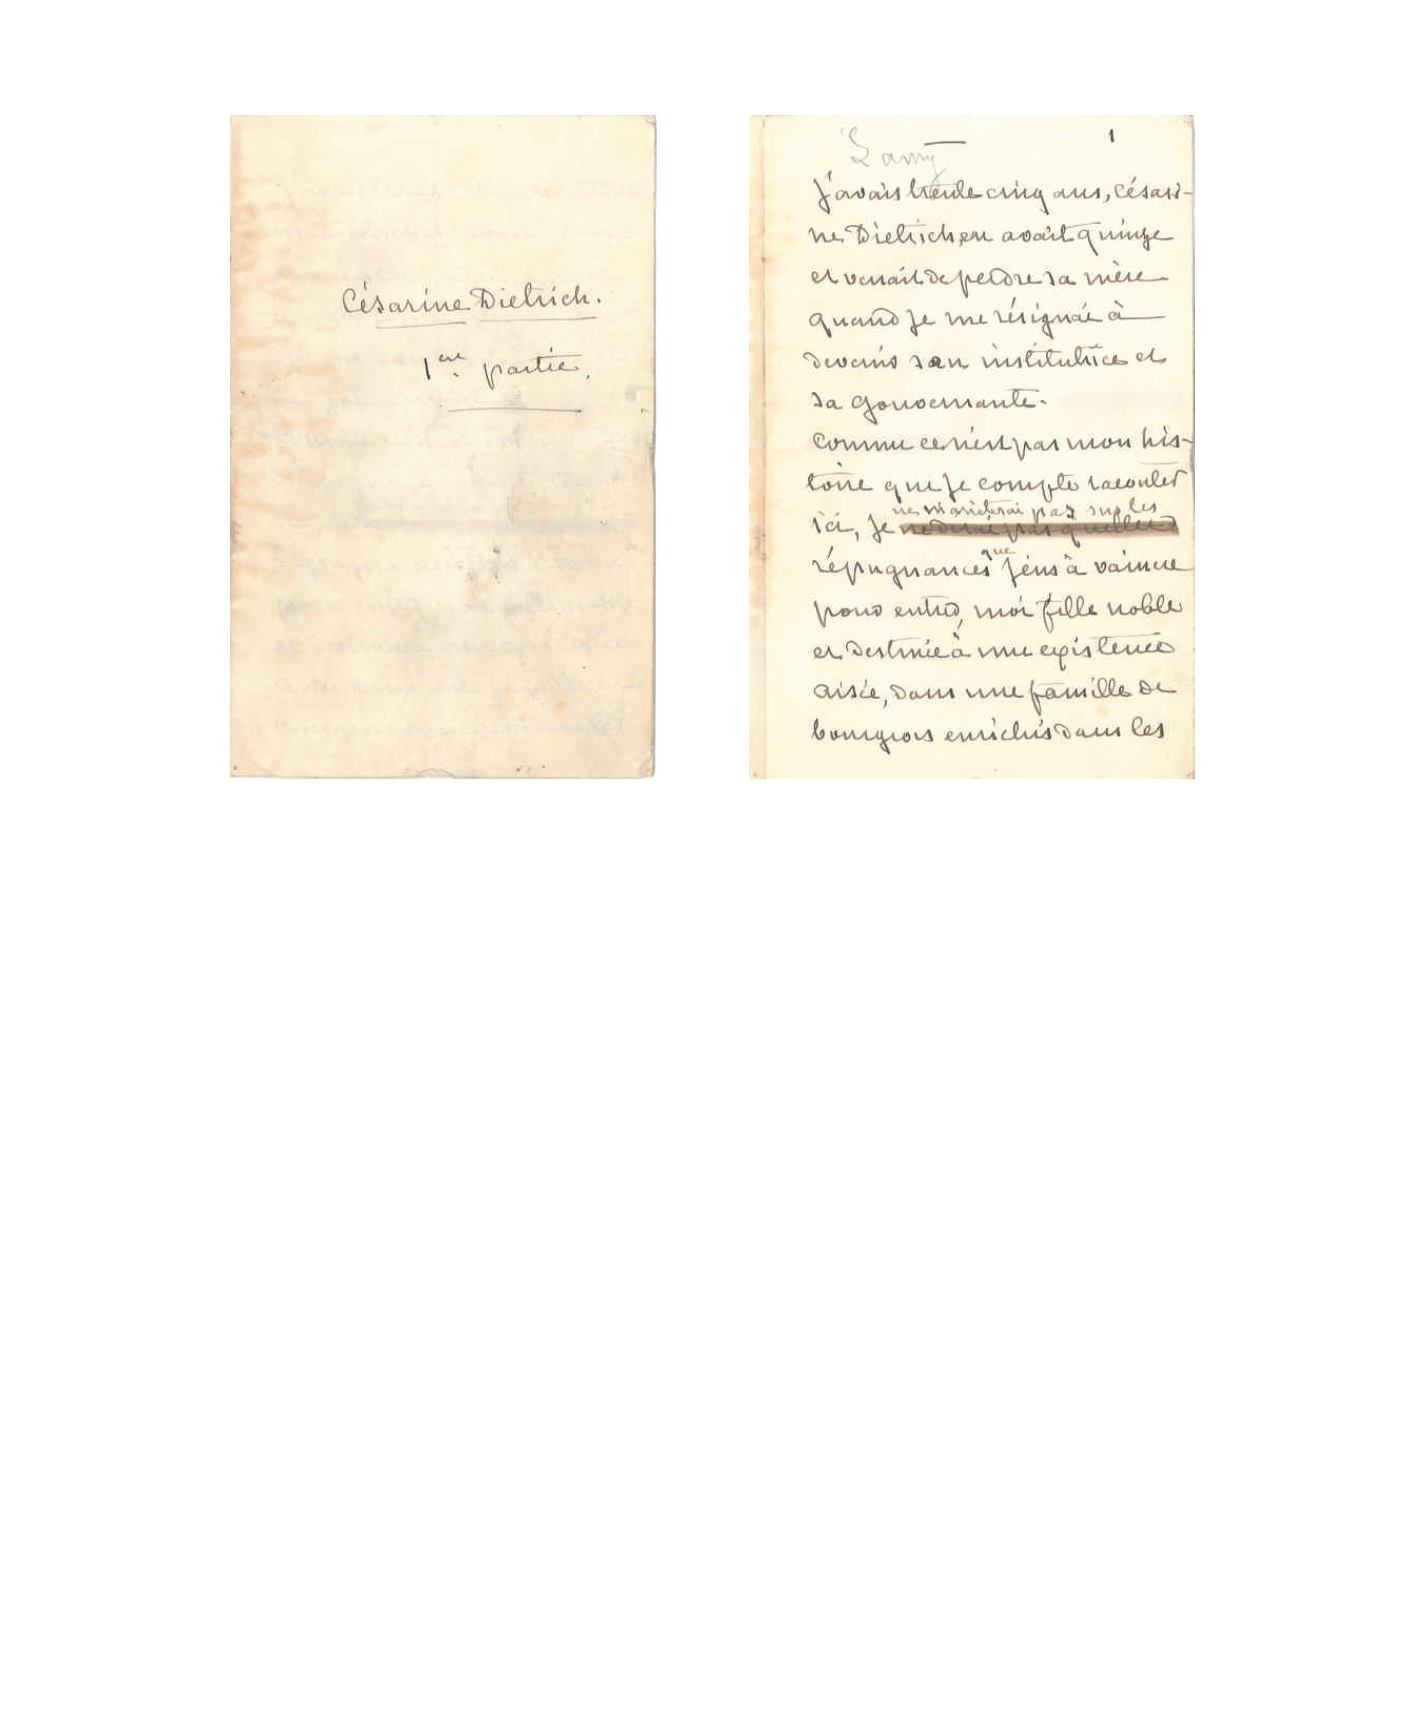 Césarine Dietrich.
1ère partie.
1
Lamy
J'avais trente cinq ans, Césari-
ne Dietrich en avait quinze
et venait de perdre sa mère
quand je me résignai à
devenir son institutrice et
sa gouvernante.
Comme ce n'est pas mon his-
toire que je compte raconter
ne m'arrêterai pas sur les
ici, je ne dirai pas quelles
que
répugnances j'eus à vaincre
pour entrer, moi fille noble
et destinée à une existence
aisée, dans une famille de
bourgeois enrichis dans les